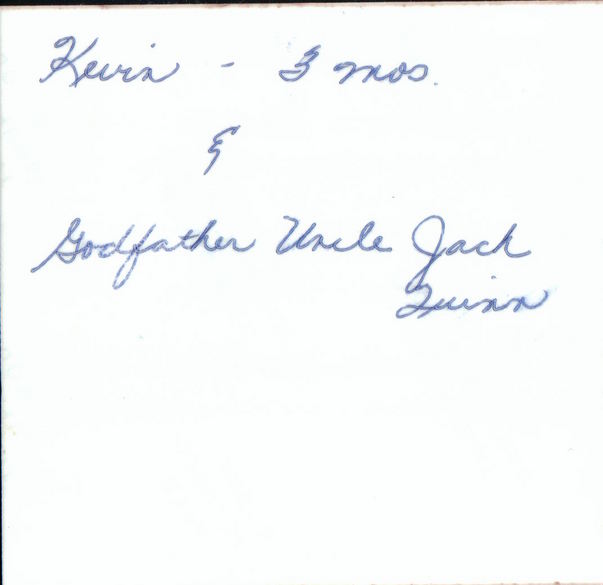 Kevin - 3 mos.
&
Godfather Uncle Jack
Quinn